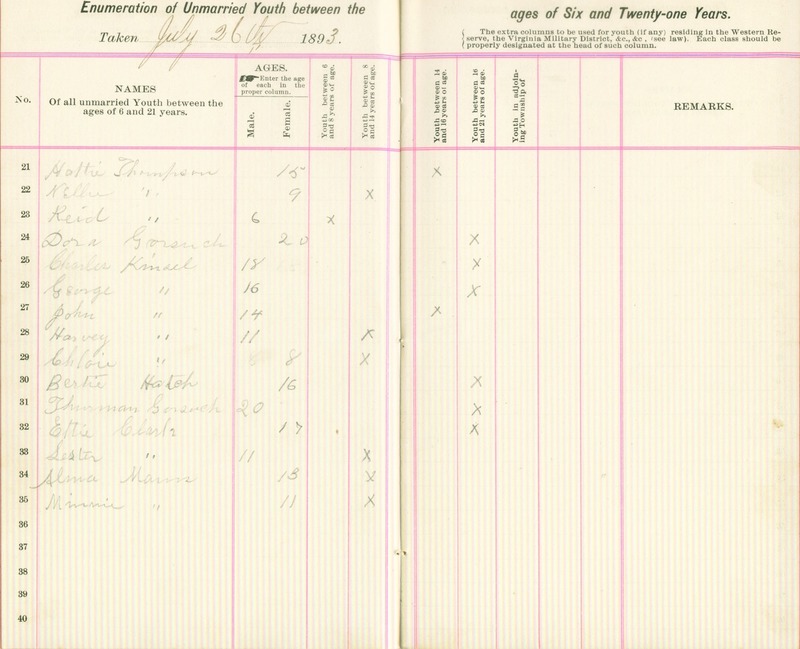 Enumeration of Unmarried Youth between the ages of Six and Twenty-one Years.
Taken July 26th 1893.
The extra columns to be used for youth (if any) residing in the Western Re-
serve, the Virginia Military District, &c., &c, (see law). Each class should be
properly designated at the head of such column.
No.
NAMES
Of all unmarried Youth between the
ages of 6 and 21 years.
AGES.
Enter the age
of each in the
proper column.
Male.
Female.
Youth between 6
and 8 years of age.
Youth between 8
and 14 years of age.
Youth between 14
and 16 years of age.
Youth between 16
and 21 years of age.
Youth in adjoin-
ing Township of
REMARKS.
21 Hattie Thompson 15 x
22 Nellie " 9 x
23 Reid " 6 x
24 Dora Gorsuch 20 x
25 Charles Kinsel 18 x
26 George " 16 x
27 John " 14 x
28 Harvey " 11 x
29 Chloie " 8 x
30 Bertie Hatch 16 x
31 Thurman Gorsuch 20 x
32 Effie Clark 17 x
33 Lester " 11 x
34 Alma Manns 13 x
35 Minnie " 11 x
36
37
38
39
40